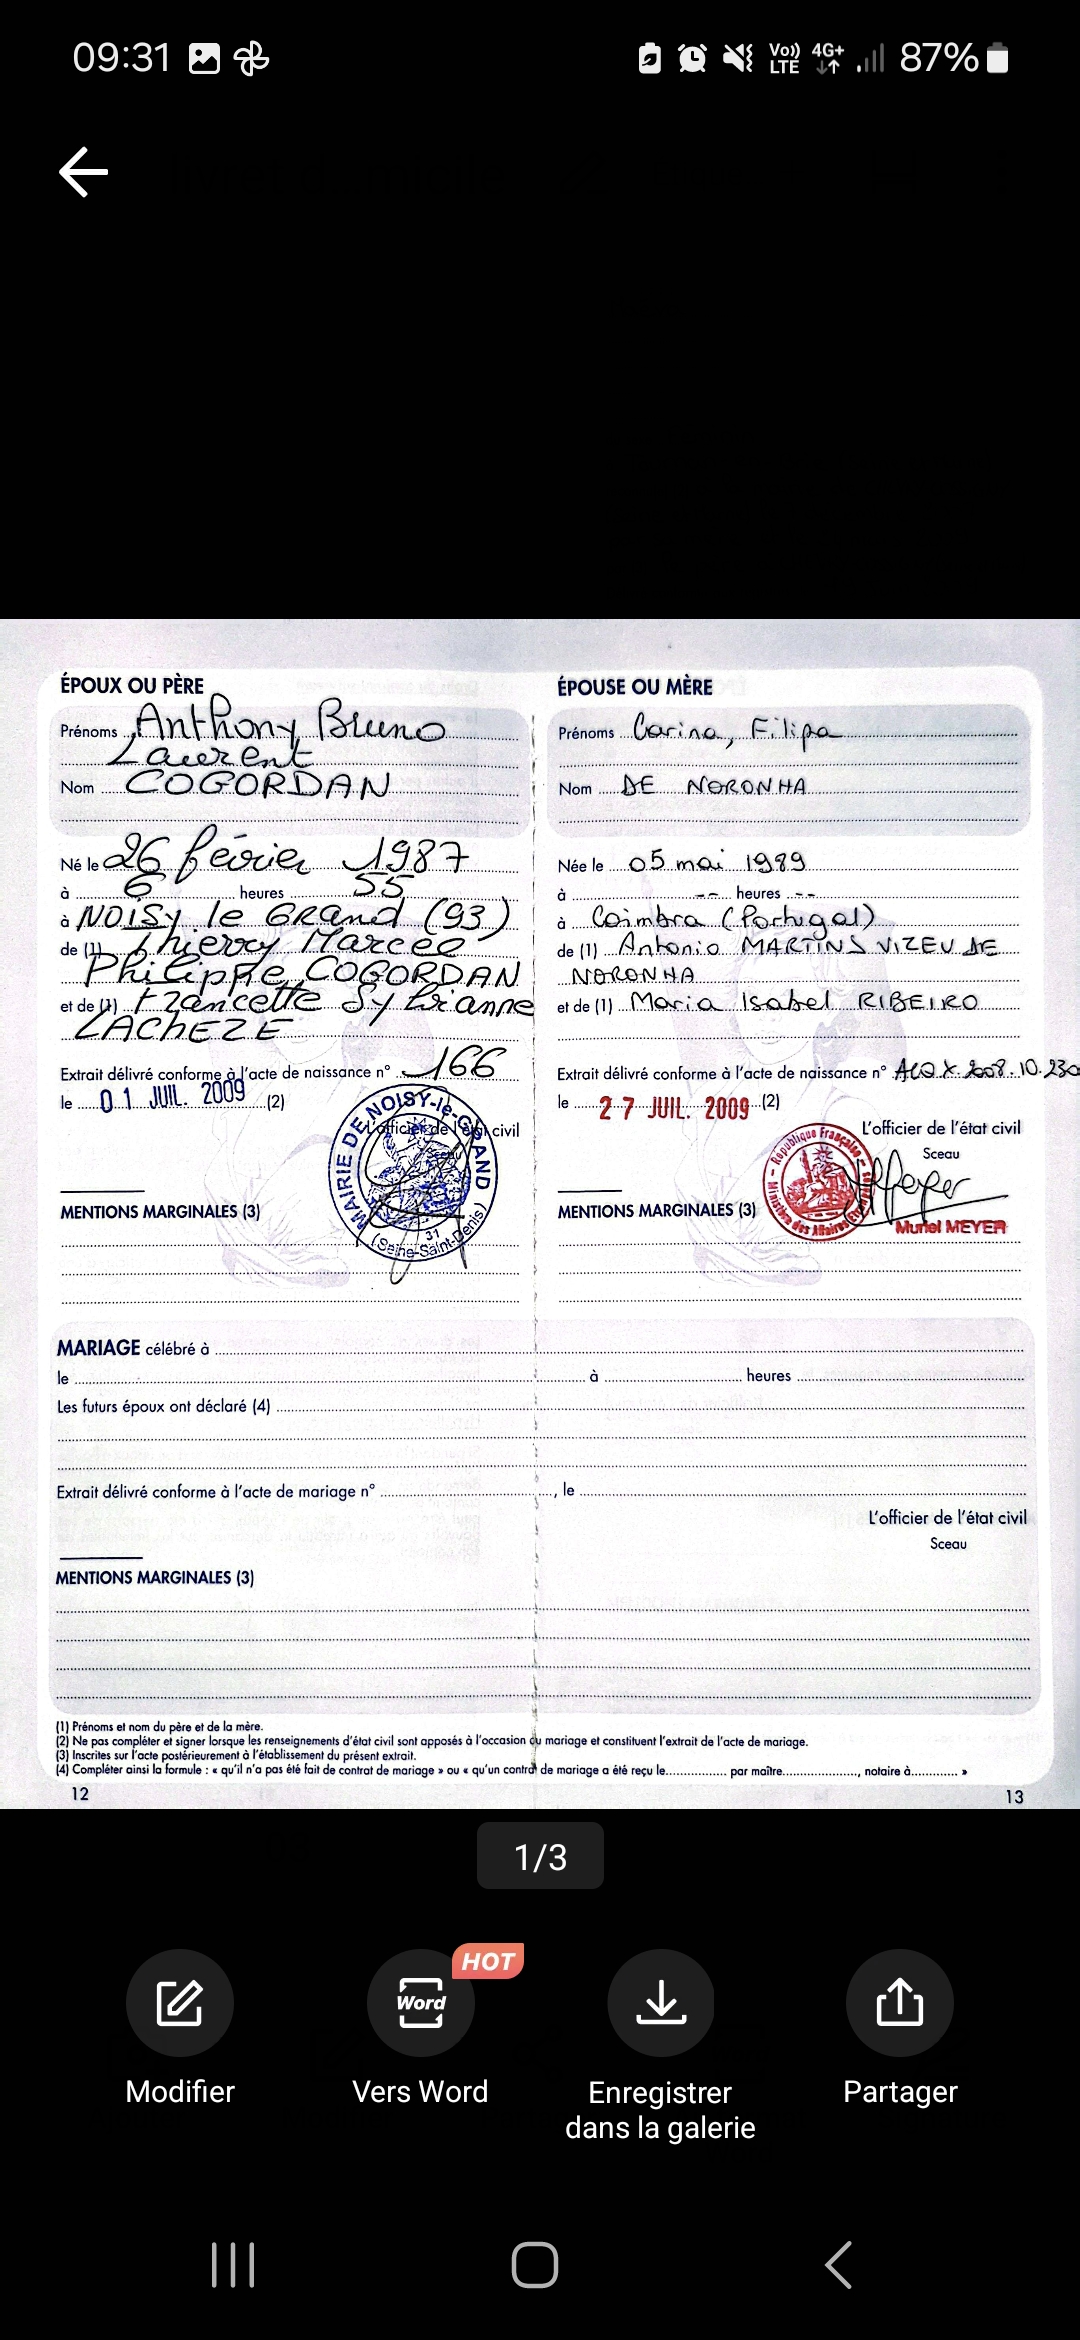 09:31 Vo)) LTE 4G+ 87%
ÉPOUX OU PÈRE
Prénoms Anthony Bruno
Laurent
Nom COGORDAN
Né le 26 février 1987
à 6 heures 55
à NOISY le GRAND (93)
de (1) Thierry Marcel
Philippe COGORDAN
et de (1) Francette Sylvianne
LACHEZE
Extrait délivré conforme à l'acte de naissance n° 166
le 01 JUIL. 2009 (2)
L'officier de l'état civil
Sceau
MAIRIE DE NOISY-le-GRAND
31
(Seine-Saint-Denis)
MENTIONS MARGINALES (3)
ÉPOUSE OU MÈRE
Prénoms Carina, Filipa
Nom DE NORONHA
Née le 05 mai 1989
à -- heures --
à Coimbra (Portugal)
de (1) Antonio MARTINS VIZEU DE
NORONHA
et de (1) Maria Isabel RIBEIRO
Extrait délivré conforme à l'acte de naissance n° 2008.10.230
le 27 JUIL. 2009 (2)
L'officier de l'état civil
Sceau
République Française
Ministère des Affaires
Muriel MEYER
MENTIONS MARGINALES (3)
MARIAGE célébré à
le à heures
Les futurs époux ont déclaré (4)
Extrait délivré conforme à l'acte de mariage n° , le
L'officier de l'état civil
Sceau
MENTIONS MARGINALES (3)
(1) Prénoms et nom du père et de la mère.
(2) Ne pas compléter et signer lorsque les renseignements d'état civil sont apposés à l'occasion du mariage et constituent l'extrait de l'acte de mariage.
(3) Inscrites sur l'acte postérieurement à l'établissement du présent extrait.
(4) Compléter ainsi la formule : « qu'il n'a pas été fait de contrat de mariage » ou « qu'un contrat de mariage a été reçu le............... par maître................, notaire à........... »
12
13
1/3
HOT
Word
Modifier
Vers Word
Enregistrer
dans la galerie
Partager